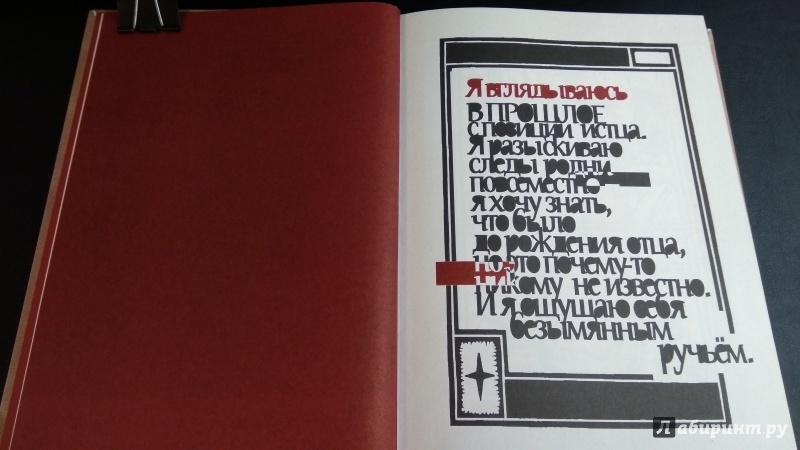 Я вглядываюсь
В ПРОШЛОЕ
с позиции истца.
Я разыскиваю
следы родни
повсеместно
я хочу знать,
что было
до рождения отца,
но это почему-то
никому не известно.
И я ощущаю себя
безымянным
ручьём.
Лабиринт.ру